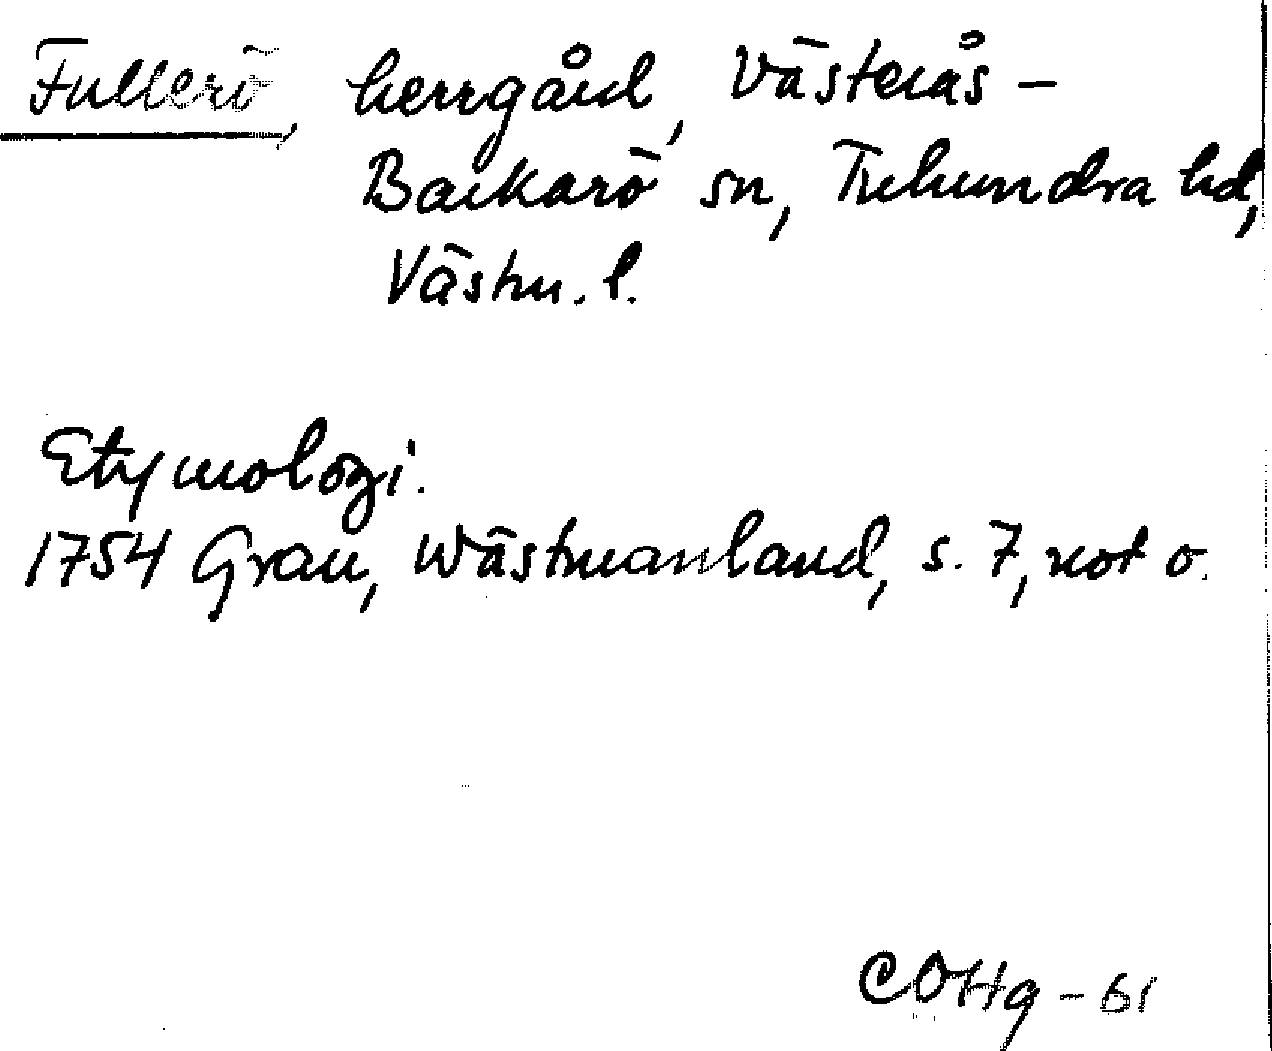 Fullerö, herrgård, Västerås –
Barkarö sn, Tuhundra hd,
Västm. l.
Etymologi.
1754 Grau, Wästmanland, s. 7, not o.
COHg – 61